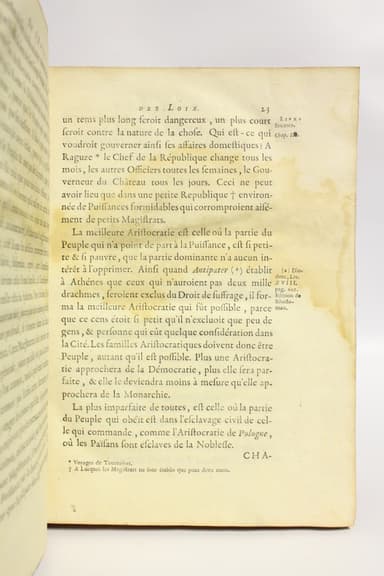 DES LOIX. 23
un tems plus long seroit dangereux, un plus court
seroit contre la nature de la chose. Qui est-ce qui
voudroit gouverner ainsi ses affaires domestiques? A
Raguze * le Chef de la République change tous les
mois, les autres Officiers toutes les semaines, le Gou-
verneur du Château tous les jours. Ceci ne peut
avoir lieu que dans une petite Republique † environ-
née de Puissances formidables qui corromproient aisé-
ment de petits Magistrats.
La meilleure Aristocratie est celle où la partie du
Peuple qui n'a point de part à la Puissance, est si peti-
te & si pauvre, que la partie dominante n'a aucun in-
térêt à l'opprimer. Ainsi quand Antipater (a) établit
à Athénes que ceux qui n'auroient pas deux mille
drachmes, seroient exclus du Droit de suffrage, il for-
ma la meilleure Aristocratie qui fût possible, parce
que ce cens étoit si petit qu'il n'excluoit que peu de
gens, & personne qui eût quelque considération dans
la Cité. Les familles Aristocratiques doivent donc être
Peuple, autant qu'il est possible. Plus une Aristocra-
tie approchera de la Démocratie, plus elle sera par-
faite, & elle le deviendra moins à mesure qu'elle ap-
prochera de la Monarchie.
La plus imparfaite de toutes, est celle où la partie
du Peuple qui obéit est dans l'esclavage civil de cel-
le qui commande, comme l'Aristocratie de Pologne,
où les Païsans sont esclaves de la Noblesse.
CHA-
* Voyages de Tournefort.
† A Lucques les Magistrats ne sont établis que pour deux mois.
LIVRE
Second.
Chap. III.
(a) Dio-
dore, Liv.
XVIII.
pag. 601.
Edition de
Rhodo-
man.